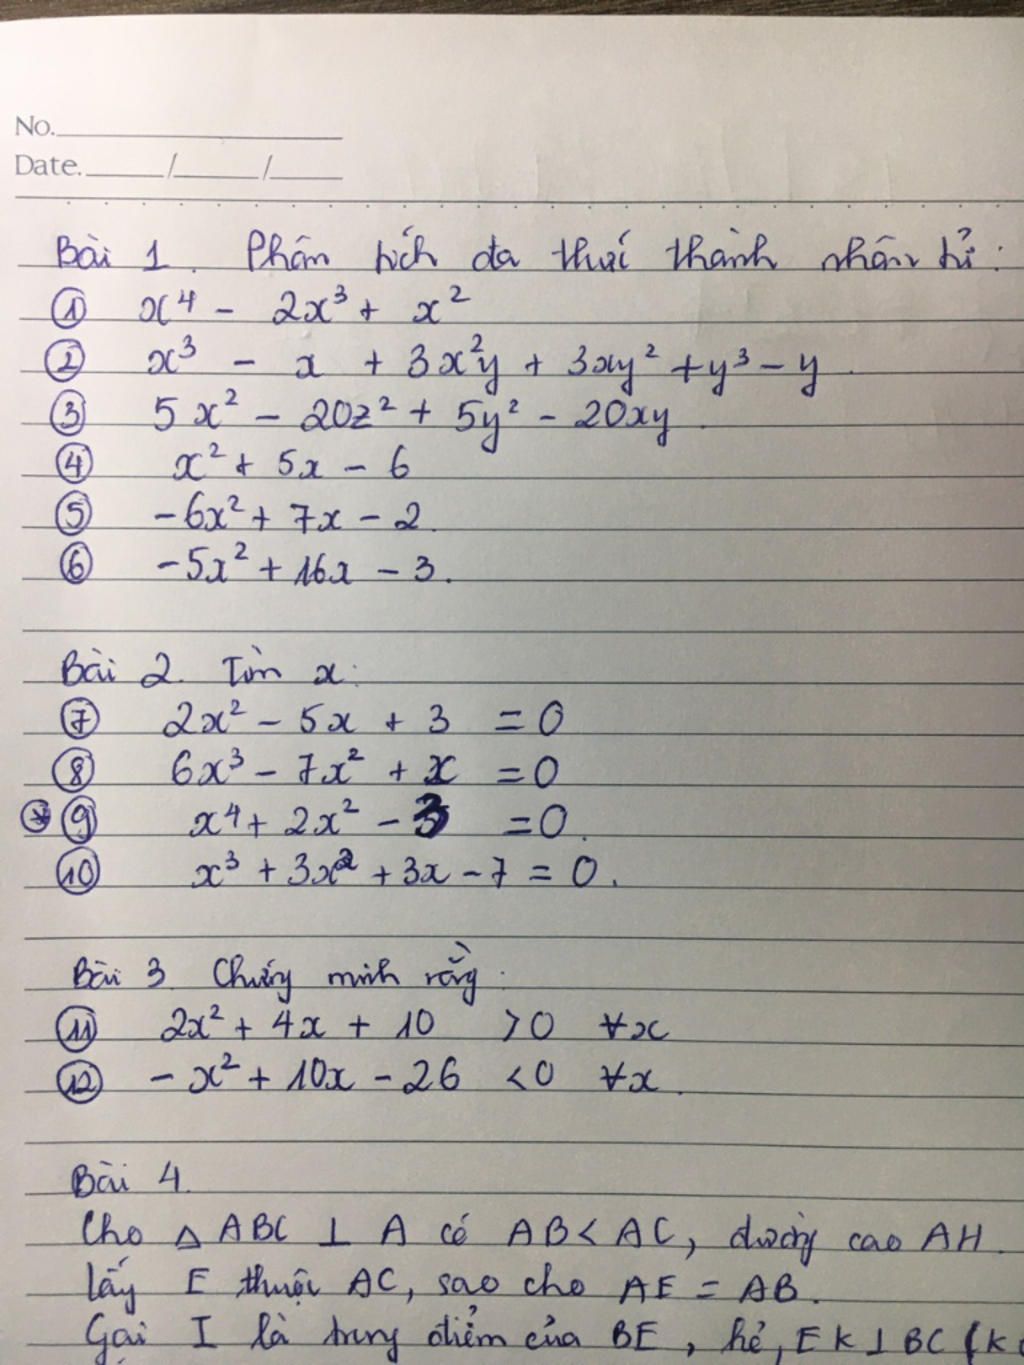 No.
Date. / /
Bài 1. Phân tích đa thức thành nhân tử:
① x⁴ - 2x³ + x²
② x³ - x + 3x²y + 3xy² + y³ - y.
③ 5x² - 20z² + 5y² - 20xy.
④ x² + 5x - 6
⑤ -6x² + 7x - 2.
⑥ -5x² + 16x - 3.
Bài 2. Tìm x:
⑦ 2x² - 5x + 3 = 0
⑧ 6x³ - 7x² + x = 0
⊛ ⑨ x⁴ + 2x² - 3 = 0.
⑩ x³ + 3x² + 3x - 7 = 0.
Bài 3. Chứng minh rằng:
⑪ 2x² + 4x + 10 > 0 ∀x
⑫ -x² + 10x - 26 < 0 ∀x.
Bài 4.
Cho Δ ABC ⊥ A có AB < AC, đường cao AH.
lấy E thuộc AC, sao cho AE = AB.
Gọi I là trung điểm của BE, kẻ, EK ⊥ BC (K